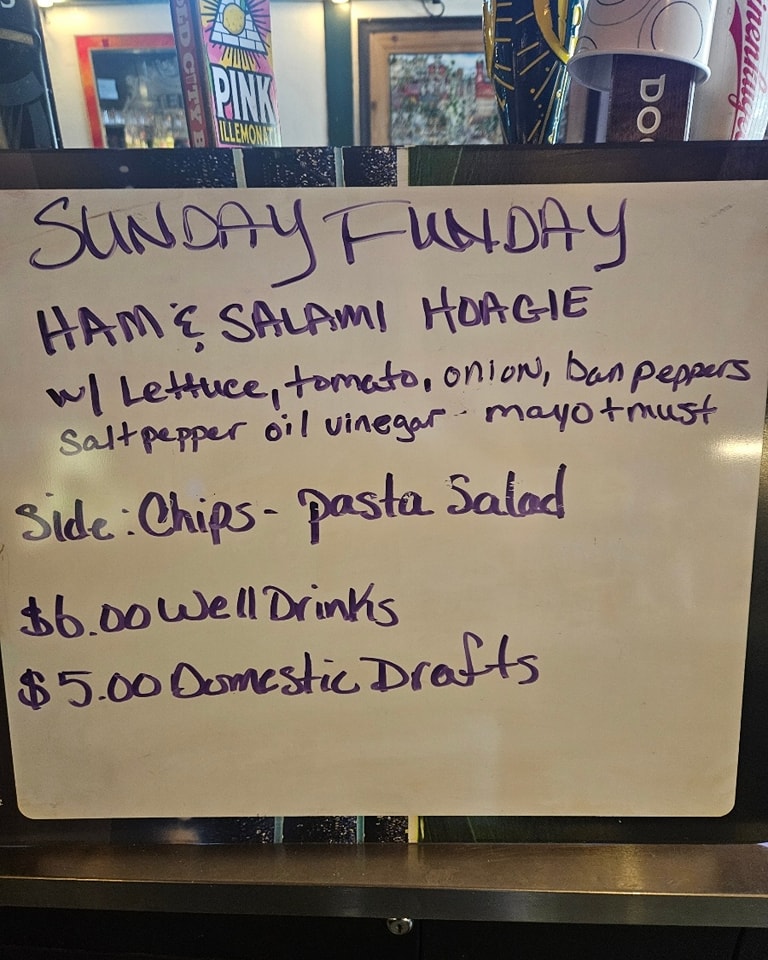 PINK
ILLEMONAT
DO
SUNDAY FUNDAY
HAM & SALAMI HOAGIE
w/ Lettuce, tomato, onion, ban peppers
Salt pepper oil vinegar - mayo + must
Side: Chips - pasta Salad
$6.00 Well Drinks
$5.00 Domestic Drafts